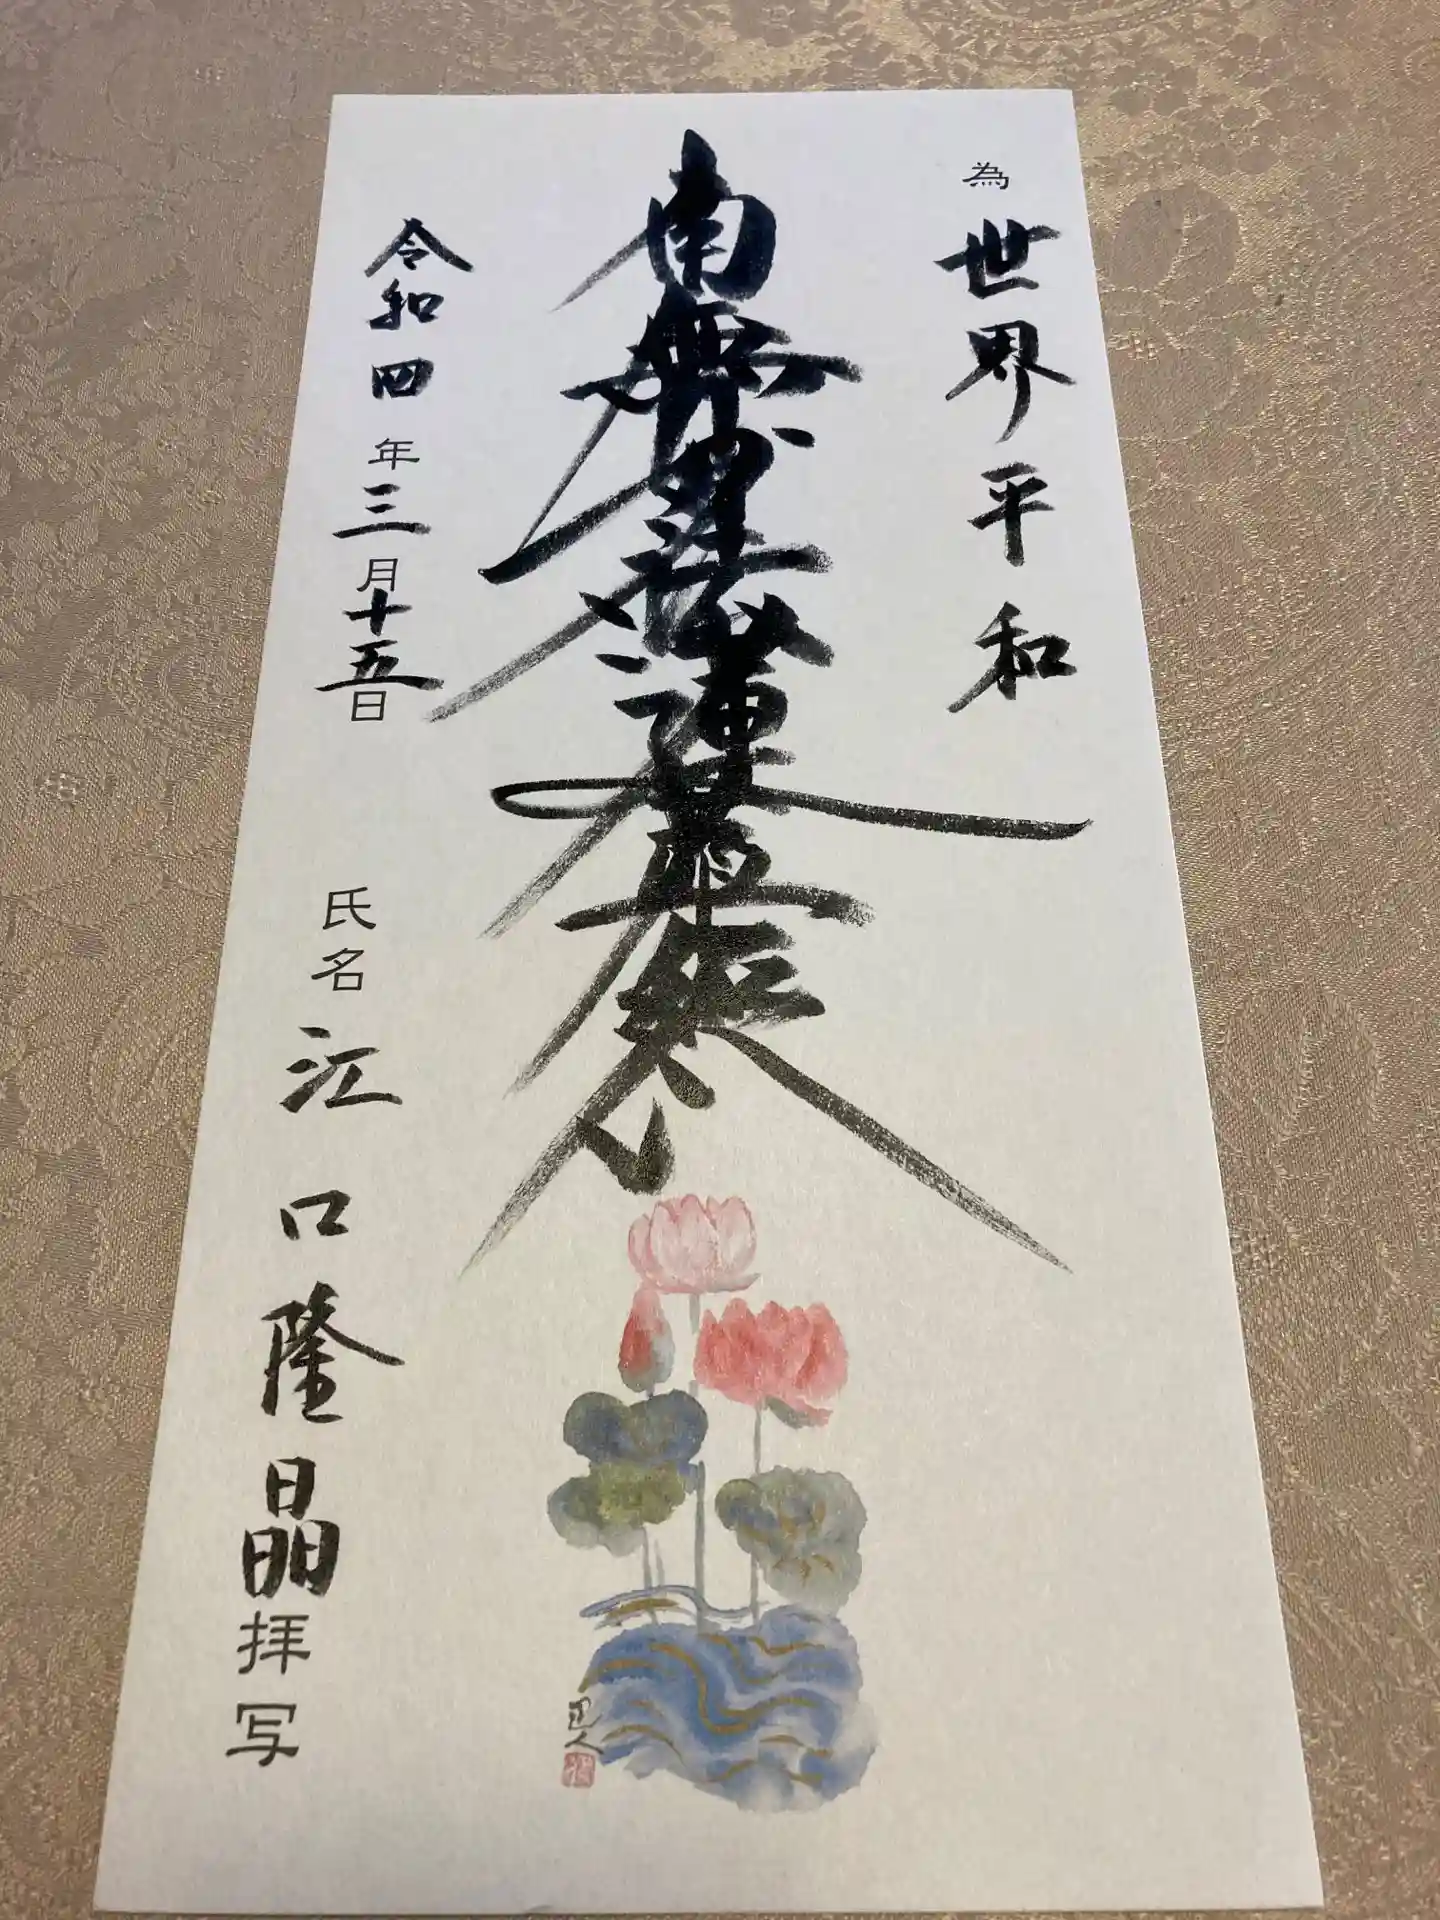 為 世界平和
南無妙法蓮華経
令和四年三月十五日
氏名 江口隆晶 拝写